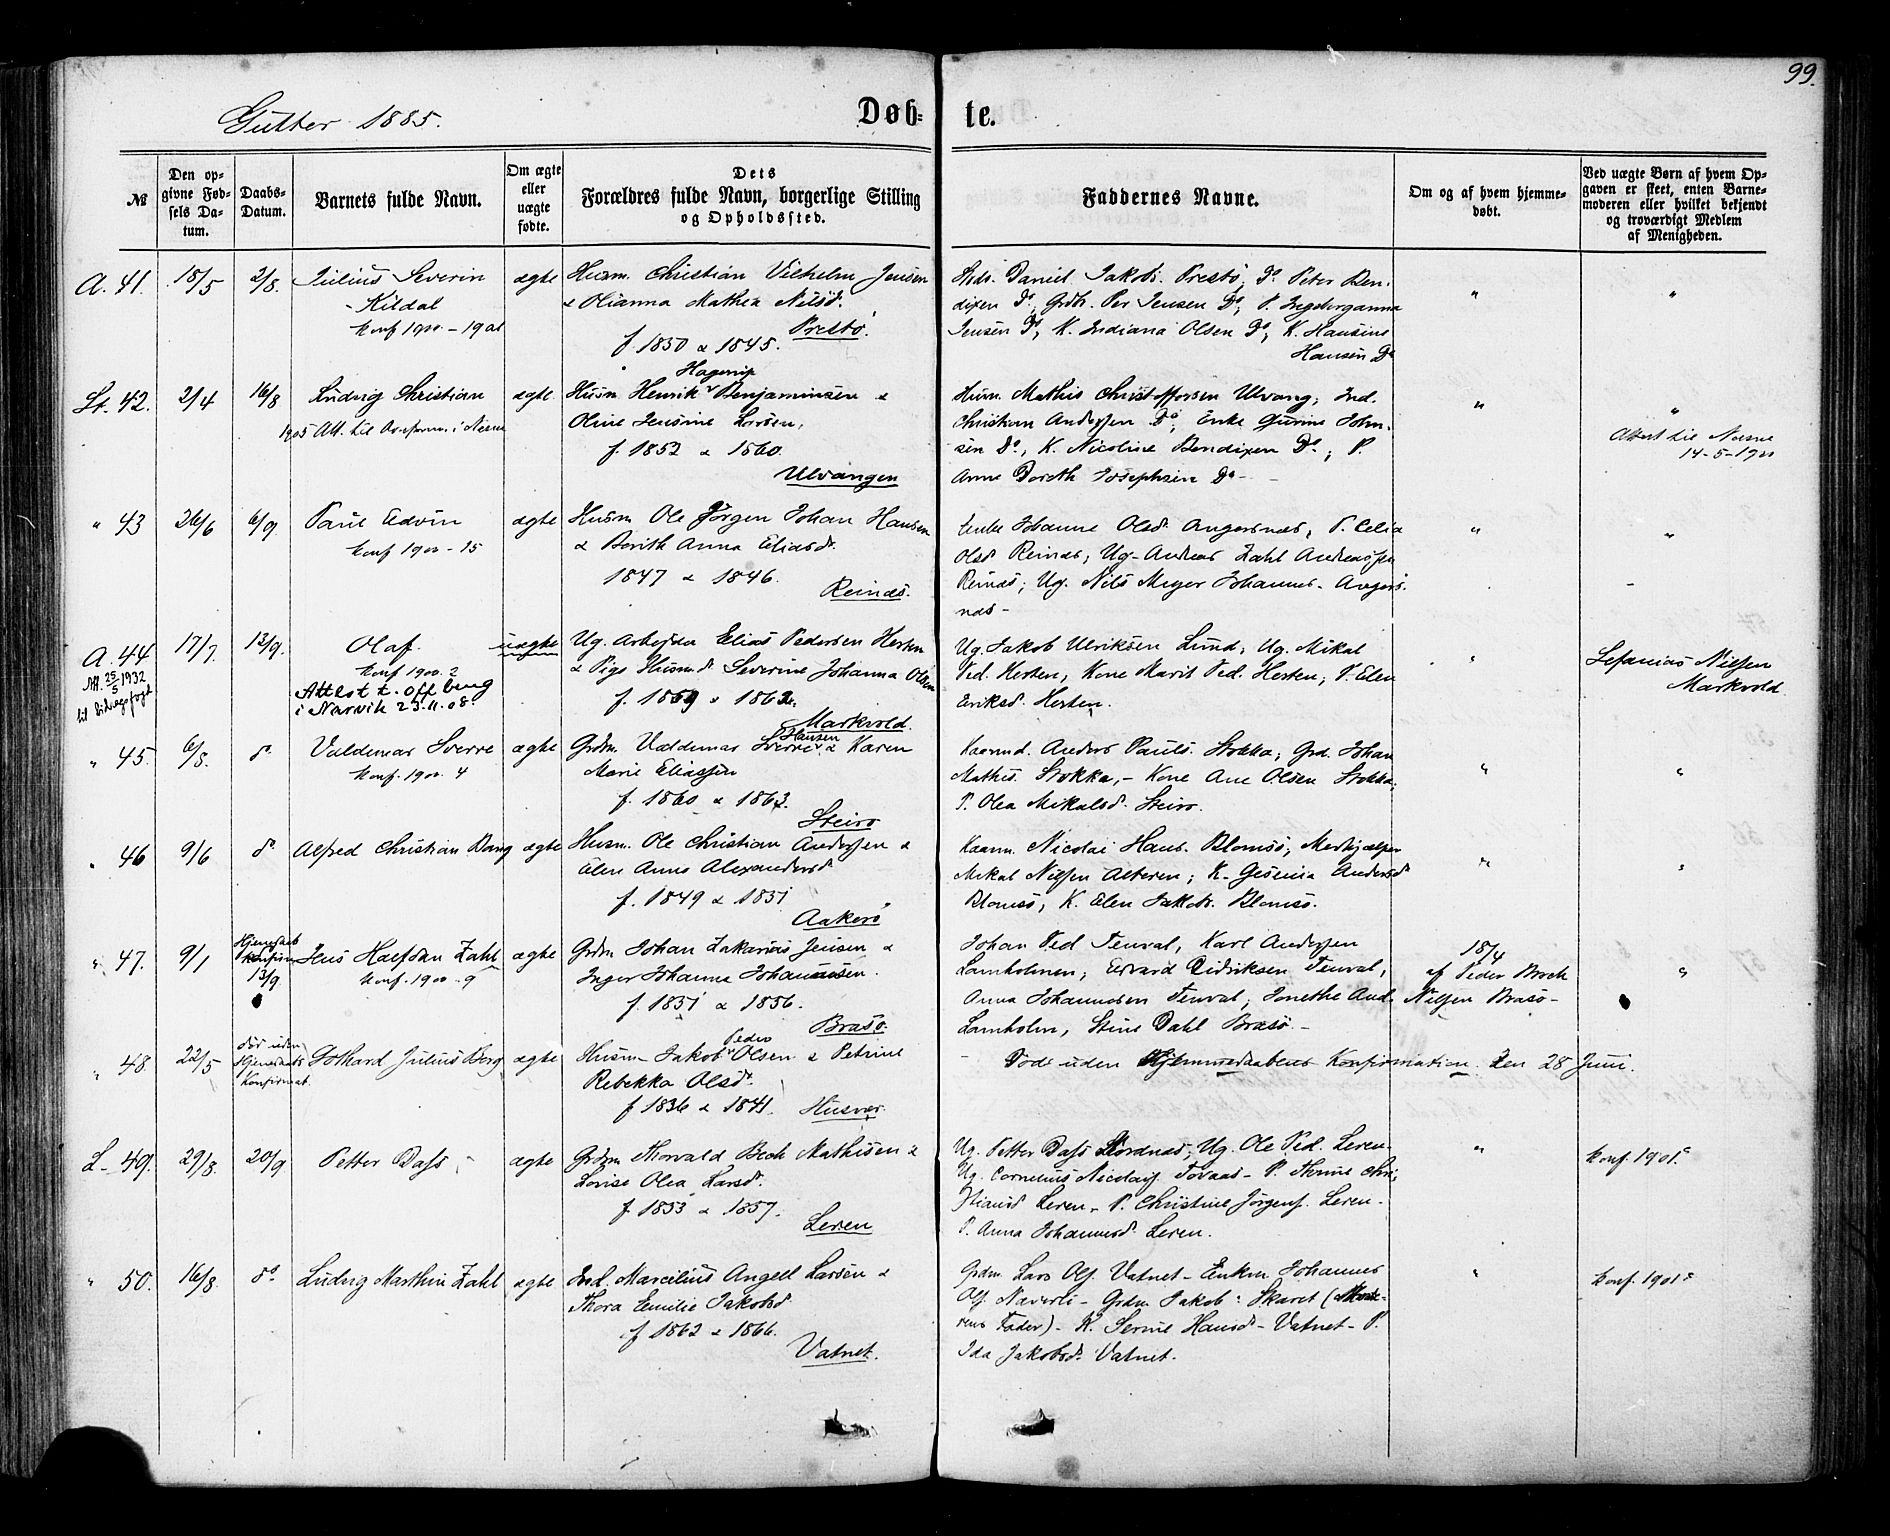 99.
Gutter 1885.
Døb-
te.
№
Den op-
givne Fød-
sels Da-
tum.
Daabs-
Datum.
Barnets fulde Navn.
Om ægte
eller
uægte
fødte.
Dets
Forældres fulde Navn, borgerlige Stilling
og Opholdssted.
Faddernes Navne.
Om og af hvem hjemme-
døbt.
Ved uægte Børn af hvem Op-
gaven er skeet, enten Barne-
moderen eller hvilket bekjendt
og troværdigt Medlem
af Menigheden.
A. 41. 18/5 2/8. Julius Severin ægte Husm. Christian Vilhelm Jensen
- Kildal & Olianna Mathea Nilsd.
Konf 1900 - 1901 Prestø.
f. 1850 & 1845.
Daniel Jakobs. Prestø, Do Peter Ben-
dixen Do, Grdb. Per Jensen Do, P. Ingeborganna
Jensen Do, K. Indiana Olsen Do, K. Hansine
Hansen Do
" "
St. 42. 2/4 16/8 Ludvig Christian ægte Hagerup
Husm Henrik Benjaminsen &
1905 Att. til Konfirm. i Nesne Oline Jensine Larsen,
f. 1852 & 1860.
Ulvangen
Husm. Mathis Christoffersen Ulvang, Ind.
Christian Andersen Do, Enke Gurine John-
sen Do, K. Nicoline Bendixen Do, P.
Anne Doreth Josephsen Do -
" "
Attest til Nesne
14-5-1900
" 43 26/6 6/9. Paul Edvin ægte Husm Ole Jörgen Johan Hansen
Konf 1900 - 15 & Berith Anna Eliasd.
1847 & 1846.
Reinæs.
Enke Johanne Olsd. Angersnæs, P. Celia
Olsd Reinæs, Ug. Andreas Zahl Andreassen
Reinæs, Ug. Nils Meyer Johannes. Angers-
næs -
" "
A. 44 17/7. 13/9. Olaf. uægte Ug. Arbejder Elias Pedersen Hesten
Att. 25/5 1932 Konf 1900. 2 & Pige Husmd Severine Johanna Olsen
til bidragsfogd Attest t. off brug f. 1859 & 1862.
i Narvik 23.11.08. Markvold.
Ug. Jakob Ulriksen Lund, Ug. Mikal
Ped. Hesten, Kone Marit Ped. Hesten, P. Elen
Eriksd. Hesten.
" Zefanias Nilsen
Markvold
" 45. 6/8. do Valdemar Sverre ægte Grdm. Valdemar Sverre Hansen & Karen
Konf. 1900. 4 Marie Eliassen
f. 1860 & 1862.
Steiro
Kaarmd. Anders Pauls. Stokka, Grd. Johan
Mathis. Stokka, - Kone Ane Olsen Stokka,
P. Olea Mikalsd. Steiro.
" "
" 46 9/6 do Alfred Christian Bang ægte Husm. Ole Christian Andersen &
Elen Anna Alexandersd
f. 1849 & 1851
Aakerø
Kaarm. Nicolai Hans. Blomsö, Medhjælper
Mikal Nilsen Alteren; K. Gesenia Andersd
Blomsö, K. Elen Jakobs. Blomsö.
" "
" 47. 9/1 Hjemdaab
Konfirm
13/9. Jens Halfdan Zahl ægte Grdm Johan Zakarias Jensen &
Konf. 1900 - 9 Inger Johanna Johannesen.
f. 1851 & 1856.
Brasø.
Johan Ped Tenval, Karl Andersen
Lamholmen, Edvard Didriksen Tenval,
Anna Johannesen Tenval, Jonethe And.
Lamholm, Stine Dahl Brasö -
18/4
af Peder Broch
Nilsen Brasö -
"
" 48. 22/5 död uden
Hjemdaabs
Konfirmat. Gothard Julius Berg ægte Peder
Husm Jakob Olsen & Petrine
Rebekka Olsd.
f 1836 & 1841. Husvær.
- Döde uden Hjemmedaabens Konfirmation den 28 Juni.
L. 49. 29/8. 20/9 Petter Dass ægte Grdm Thorvald Bech Mathisen &
Lovise Olea Larsd.
f. 1853 & 1857.
Leren
Ug. Petter Dass Nordnæs, Ug. Ole Ped. Leren
Ug. Cornelius Nicolays. Tovaas - P. Thrine Chri-
stiansd Leren - P. Christine Jörgens. Leren -
P. Anna Johannesd. Leren.
" Konf. 1901.
" 50. 16/8. do Ludvig Marthin Zahl ægte Ind. Marcelius Angell Larsen &
Thora Emilie Jakobsd
f 1862 & 1866.
Vatnet.
Grdm. Lars Ols. Vatnet - Enkm Johannes
Ols. Naverli - Grdm Jakob: Skaret (Mode-
rens Fader) - K. Serine Hansd - Vatnet - P.
Ida Jakobsd. Vatnet.
" Konf. 1901.